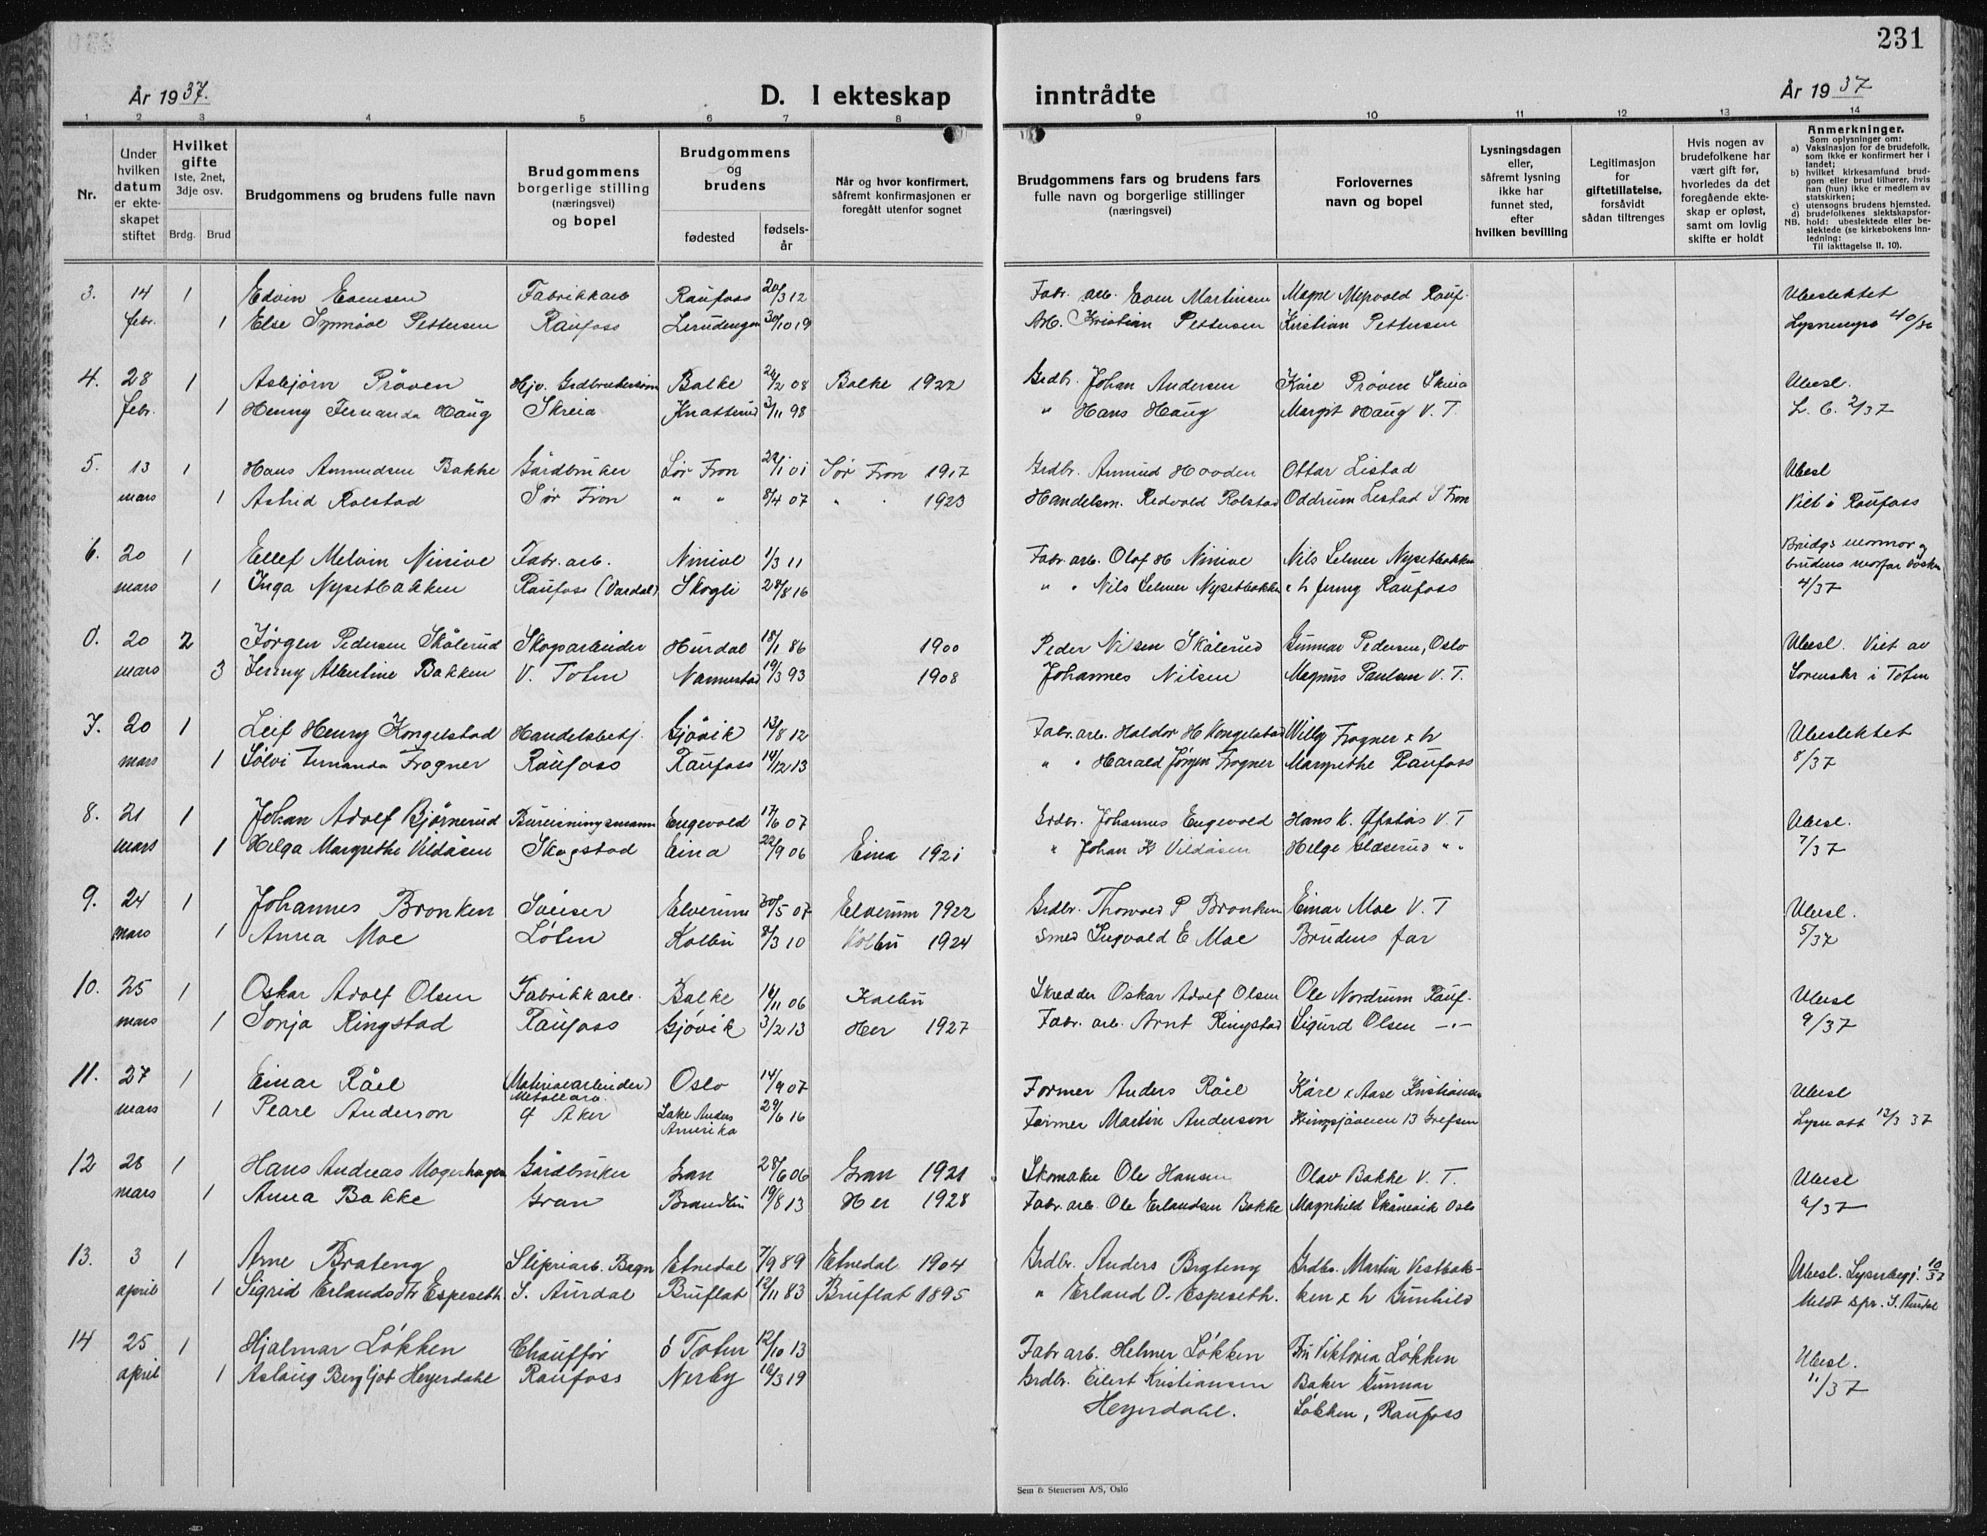 231
År 1937.
D. I ekteskap
inntrådte
År 1937
1 2 3 4 5 6 7 8 9 10 11 12 13 14
Nr.
Under hvilken datum er ekteskapet stiftet
Hvilket gifte
1ste, 2net, 3dje osv.
Brdg. Brud
Brudgommens og brudens fulle navn
Brudgommens borgerlige stilling (næringsvei) og bopel
Brudgommens og brudens
fødested
fødselsår
Når og hvor konfirmert, såfremt konfirmasjonen er foregått utenfor sognet
Brudgommens fars og brudens fars fulle navn og borgerlige stillinger (næringsvei)
Forlovernes navn og bopel
Lysningsdagen eller, såfremt lysning ikke har funnet sted, efter hvilken bevilling
Legitimasjon for giftetillatelse, forsåvidt sådan tiltrenges
Hvis nogen av brudefolkene har vært gift før, hvorledes da det foregående ekteskap er opløst, samt om lovlig skifte er holdt
Anmerkninger.
Som oplysninger om:
a) Vaksinasjon for de brudefolk, som ikke er konfirmert her i landet;
b) hvilket kirkesamfund brudgom eller brud tilhører, hvis han (hun) ikke er medlem av statskirken;
c) utensogns brudens hjemsted.
d) brudefolkenes slektskapsforhold: ubeslektede eller beslektede (se kirkebokens Innledning:
NB. Til iakttagelse II, 10).
3. 14 1 Edvin Evensen Fabrikkarb Raufoss 20/3 12 Fabr. arb. Even Martinsen Magne Ubeslektet
febr. 1 Else Synnöve Pettersen Raufoss 30/10 19 Arb. Kristian Pettersen Kristian Pettersen
4. 28 1 Asbjörn Pröven Balke 08 Balke 1922 Grdbr. Johan Andersen Kåre Pröven Skreia Ubesl.
febr. 1 Henny Fernanda Haug Skreia Knatterud 3/11 98 " Hans Haug Margit Haug V. T. L. b. 2/37
5. 13 1 Hans Amundsen Bakke Gårdbruker Sör Fron 01 Sör Fron 1917 Grdbr. Amund Hovden Ottar Listad Ubesl
mars 1 Astrid Rolstad Sör Fron " " 8/4 07 " " 1923 Handelsm. Redvald Rolstad Oddrum Listad S Fron Viet i Raufoss
6. 20 1 Ellef Melvin Ninive Fabr. arb. Ninive 1/3 11 Fabr. arb. Olof H Ninive Nils Selmer Nysetbakken Brudgs mormor og
mars 1 Inga Nysetbakken Raufoss (Vardal) Skogli 28/8 16 " " Nils Selmer Nysetbakken & h Jenny Raufoss brudens morfar
4/37
0. 20 2 Jörgen Pedersen Skålerud Skogsarbeider Hurdal 18/1 86 1900 Peder Nilsen Skålerud Gunnar Pedersen, Oslo Ubesl. Viet av
mars 3 Jenny Albertine Bakken V. Toten Nannestad 19/3 93 1908 Johannes Nilsen Magnus Paulsen V. T. Sorenskr i Toten
7. 20 1 Leif Henry Kongelstad Handelsbetj. Gjövik 13/8 12 Fabr. arb. Haldor H Kongelstad Willy Fragner & h Ubeslektet
mars 1 Sölvi Fernanda Fragner Raufoss Raufoss 14/12 13 " " Harald Jörgen Fragner Margrethe Raufoss 8/37
8. 21 1 Johan Adolf Björnerud Bureisningsmann Engevold 17/6 07 Grdbr. Johannes Engevold Hans K. V. T Ubesl.
mars 1 Helga Margrethe Vildåsen Skogstad Eina 22/9 06 Eina 1921 " Johan K Vildåsen Helge Glæserud " " 7/37
9. 24 1 Johannes Bronken Sveiser Elverum 30/5 07 Elverum 1922 Grdbr. Thorvald P Bronken Einar Moe V. T Ubesl.
mars 1 Anna Moe Löten Kolbu 8/3 10 Kolbu 1924 Smed Ingvald E Moe Brudens far 5/37
10. 25 1 Oskar Adolf Olsen Fabrikkarb. Balke 16/11 06 Kolbu Skredder Oskar Adolf Olsen Ole Nordrum Rauf. Ubesl
mars 1 Sonja Ringstad Raufoss Gjövik 3/2 13 Her 1927 Fabr. arb. Arnt Ringstad Sigurd Olsen -"- 9/37
11. 27 1 Einar Råel Oslo 14/9 07 Former Anders Råel Kåre & Aase Kristiansen Ubesl
mars 1 Pearl Anderson Aker Lake Andes Amerika 29/6 16 Farmer Martin Anderson 13 Grefsen Lysn att 12/3 37
12 28 1 Hans Andreas Mogerhagen Gårdbruker Gran 28/6 06 Gran 1921 Skomaker Ole Hansen Olav Bakke V. T. Ubesl
mars 1 Anna Bakke Gran Brandbu 19/8 13 Her 1928 Fabr. arb. Ole Erlandsen Bakke Magnhild Skånevik Oslo 6/37
13. 3 1 Arne Brateng Sliperiarb. Begn Etnedal 7/9 89 Etnedal 1904 Grdbr. Anders Brateng Grdbr. Martin Vestbak- Ubesl. Lysnbegj. 10/37
april 1 Sigrid Erlandsdtr Espeseth S. Aurdal Bruflat 12/11 83 Bruflat 1895 " Erland O. Espeseth. ken & h Gunhild Meldt spr. S. Aurdal
14 25 1 Hjalmar Lökken Chauffør ö Toten 12/10 13 Fabr arb. Helmer Lökken Fru Viktoria Lökken Ubesl.
april 1 Aslaug Bergljot Heyerdahl Raufoss Nerby 16/3 19 Grdbr. Eilert Kristiansen Baker Gunnar 11/37
Heyerdahl. Lökken, Raufoss
Sem & Stenersen A/S, Oslo